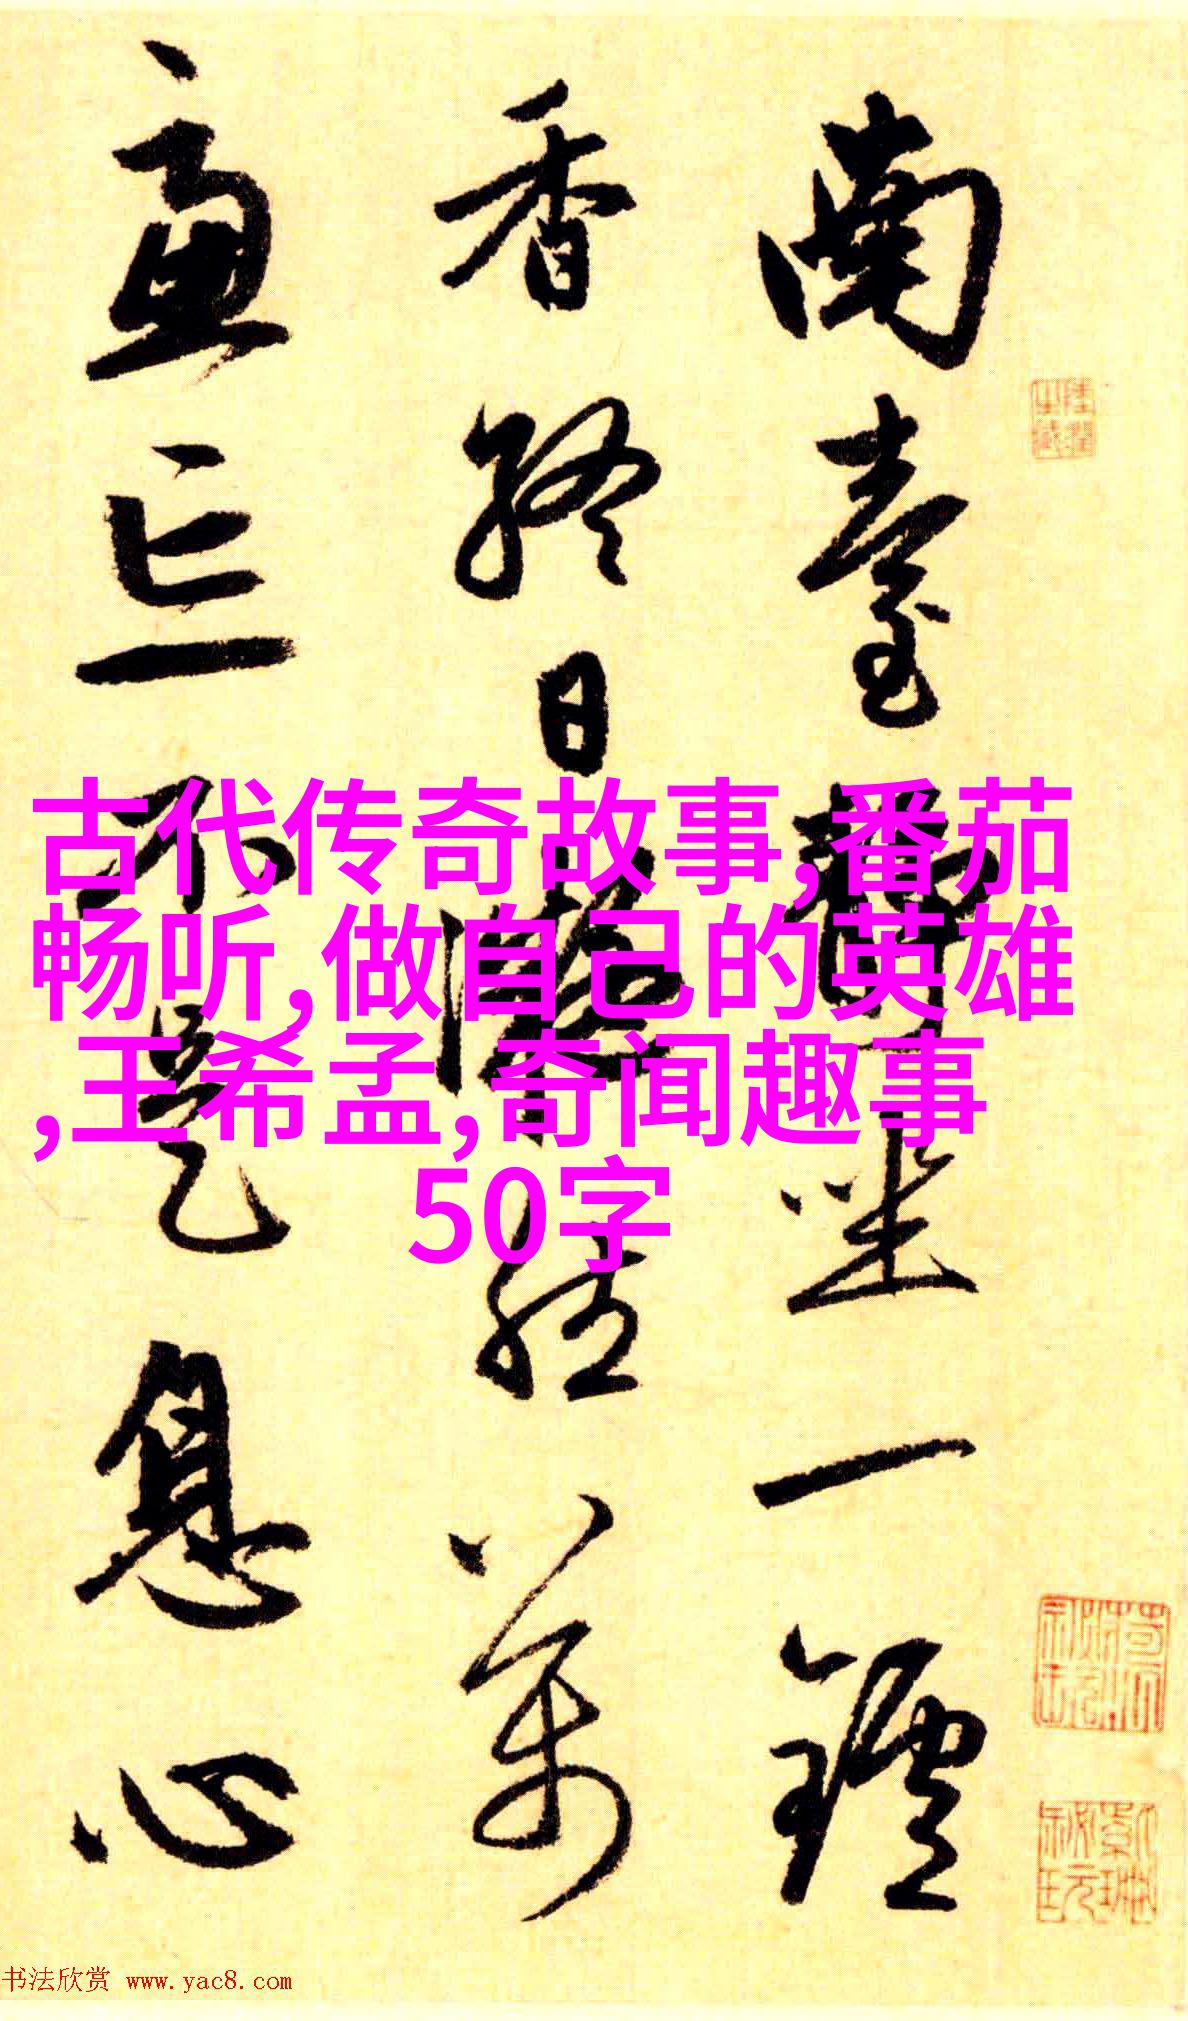 南臺靜坐一鑪
香終日凝然萬
慮忘不是息心
古代传奇故事,番茄
畅听,做自己的英雄
,王希孟,奇闻趣事
50字
书法欣赏 www.yac8.com